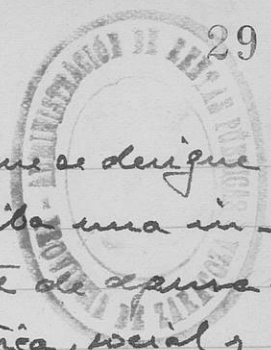 29
ADMINISTRACIÓN DE RENTAS PÚBLICAS
PROVINCIA DE ZARAGOZA
que se designe
una in-
de
social y